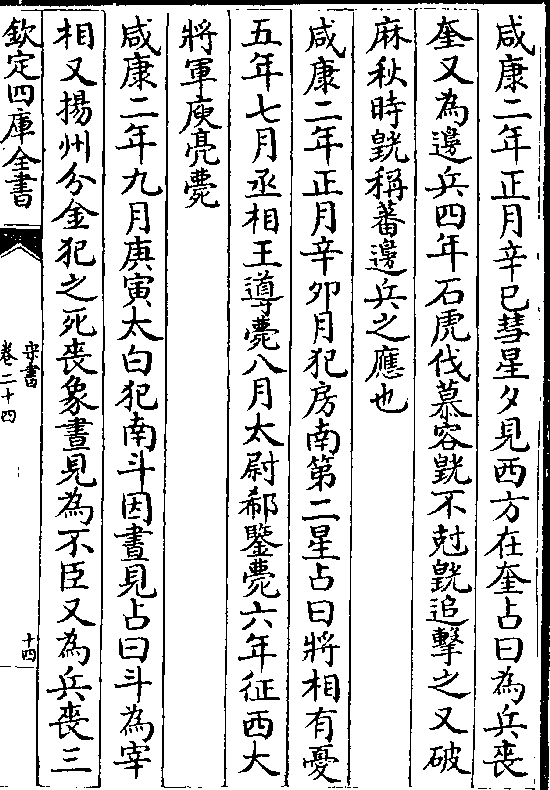 咸康二年正月辛巳彗星夕見西方在奎占曰為兵喪
奎又為邊兵四年石虎伐慕容皝不尅皝追擊之又破
麻秋時皝稱蕃邊兵之應也
咸康二年正月辛卯月犯房南第二星占曰將相有憂
五年七月丞相王導薨八月太尉郗鑒薨六年征西大
將軍庾亮薨
咸康二年九月庚寅太白犯南斗因晝見占曰斗為宰
相又揚州分金犯之死喪象晝見為不臣又為兵喪三
欽定四庫全書
宋書
卷二十四
十四